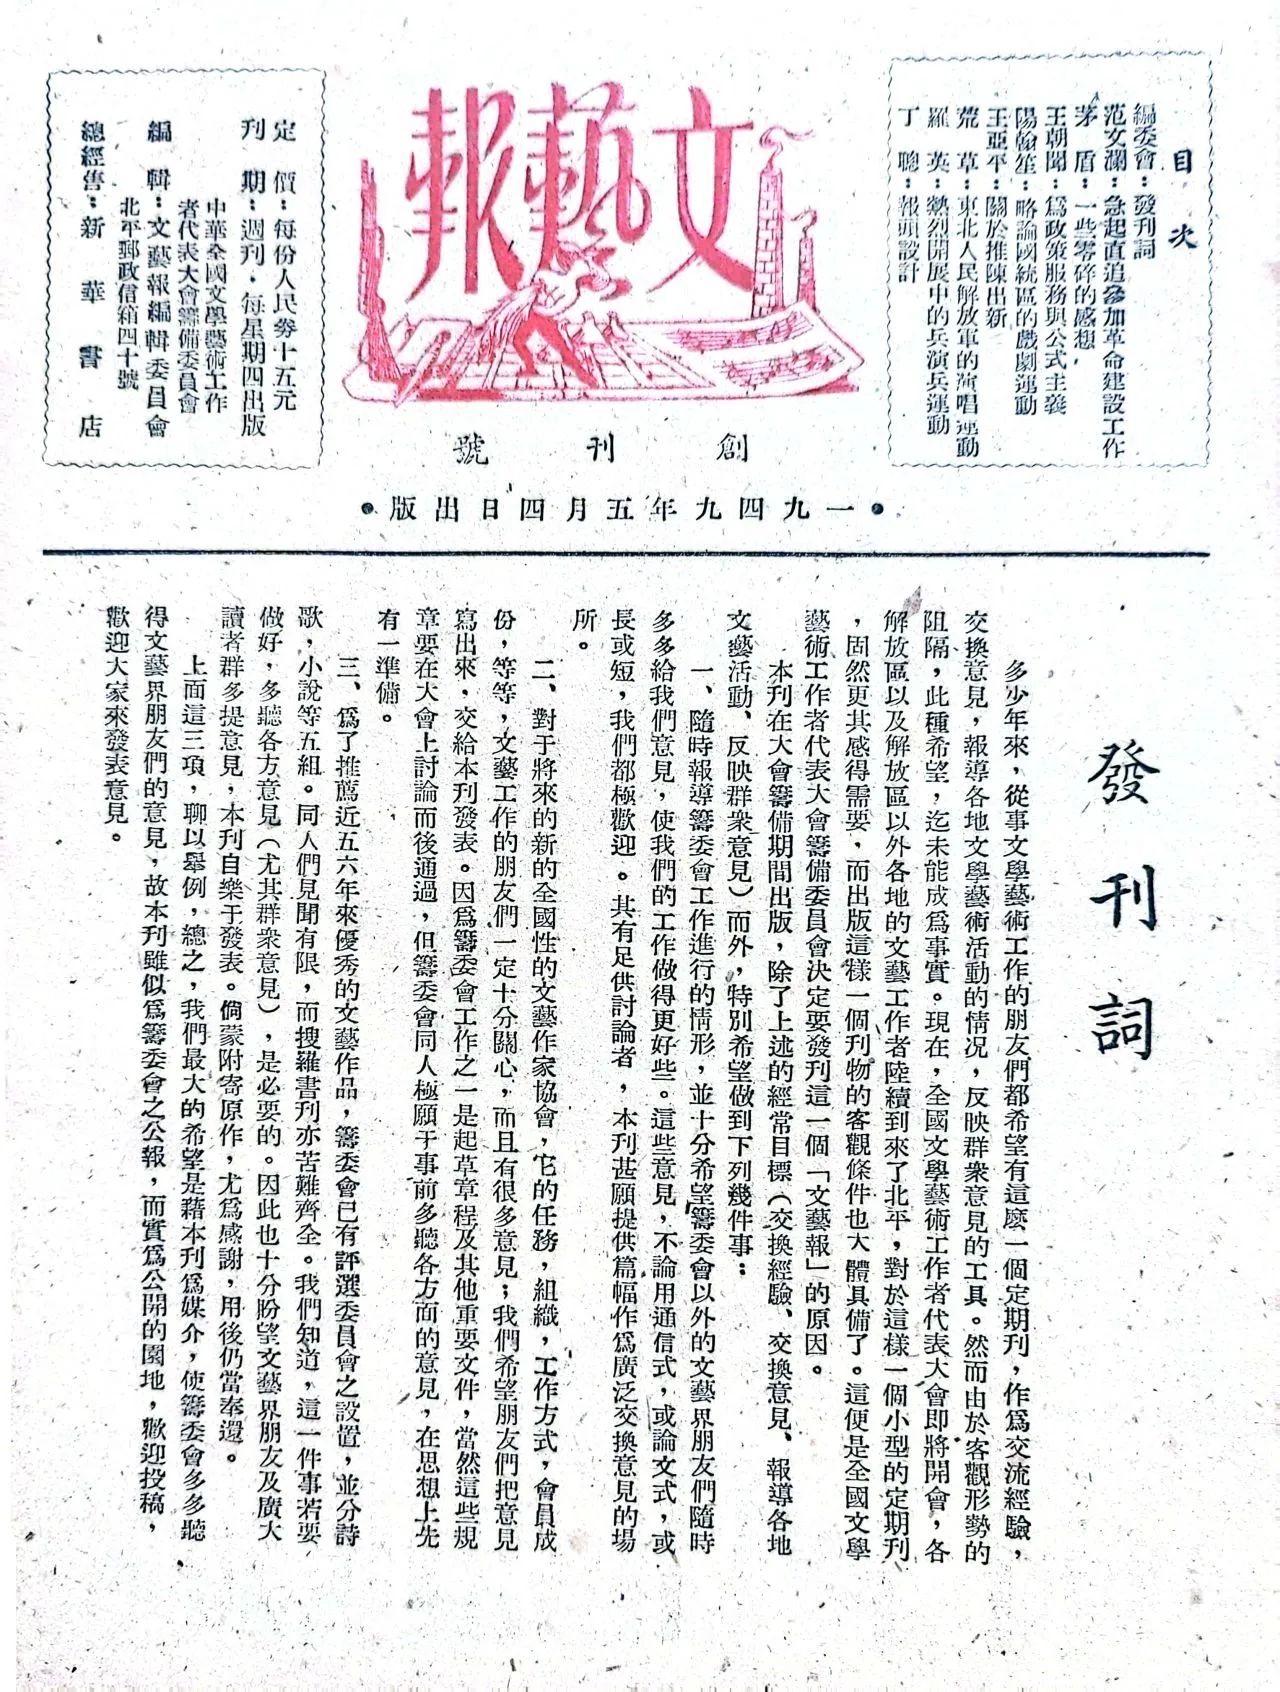 目次
編委會：發刊詞
范文瀾：急起直追參加革命建設工作
茅　盾：一些零碎的感想
王朝聞：爲政策服務與公式主義
陽翰笙：略論國統區的戲劇運動
王亞平：關於推陳出新
荒　草：東北人民解放軍的演唱運動
羅　英：熱烈開展中的兵演兵運動
丁　聰：報頭設計
文藝報
創刊號
•一九四九年五月四日出版•
定　價：每份人民券十五元
刊　期：週刊·每星期四出版
中華全國文學藝術工作
者代表大會籌備委員會
編　輯：文藝報編輯委員會
北平郵政信箱四十號
總經售：新華書店
發刊詞
多少年來，從事文學藝術工作的朋友們都希望有這麼一個定期刊，作爲交流經驗，
交換意見，報導各地文學藝術活動的情況，反映群衆意見的工具。然而由於客觀形勢的
阻隔，此種希望，迄未能成爲事實。現在，全國文學藝術工作者代表大會即將開會，各
解放區以及解放區以外各地的文藝工作者陸續到來了北平，對於這樣一個小型的定期刊
，固然更其感得需要，而出版這樣一個刊物的客觀條件也大體具備了。這便是全國文學
藝術工作者代表大會籌備委員會決定要發刊這一個「文藝報」的原因。
本刊在大會籌備期間出版，除了上述的經常目標（交換經驗、交換意見、報導各地
文藝活動、反映群衆意見）而外，特別希望做到下列幾件事：
一、隨時報導籌委會工作進行的情形，並十分希望籌委會以外的文藝界朋友們隨時
多多給我們意見，使我們的工作做得更好些。這些意見，不論用通信式，或論文式，或
長或短，我們都極歡迎。其有足供討論者，本刊甚願提供篇幅作爲廣泛交換意見的場
所。
二、對于將來的新的全國性的文藝作家協會，它的任務，組織，工作方式，會員成
份，等等，文藝工作的朋友們一定十分關心，而且有很多意見；我們希望朋友們把意見
寫出來，交給本刊發表。因爲籌委會工作之一是起草章程及其他重要文件，當然這些規
章要在大會上討論而後通過，但籌委會同人極願于事前多聽各方面的意見，在思想上先
有一準備。
三、爲了推薦近五六年來優秀的文藝作品，籌委會已有評選委員會之設置，並分詩
歌，小說等五組。同人們見聞有限，而搜羅書刊亦苦難齊全。我們知道，這一件事若要
做好，多聽各方意見（尤其群衆意見），是必要的。因此也十分盼望文藝界朋友及廣大
讀者群多提意見，本刊自樂于發表。倘蒙附寄原作，尤爲感謝，用後仍當奉還。
上面這三項，聊以舉例，總之，我們最大的希望是藉本刊爲媒介，使籌委會多多聽
得文藝界朋友們的意見，故本刊雖似爲籌委會之公報，而實爲公開的園地，歡迎投稿，
歡迎大家來發表意見。